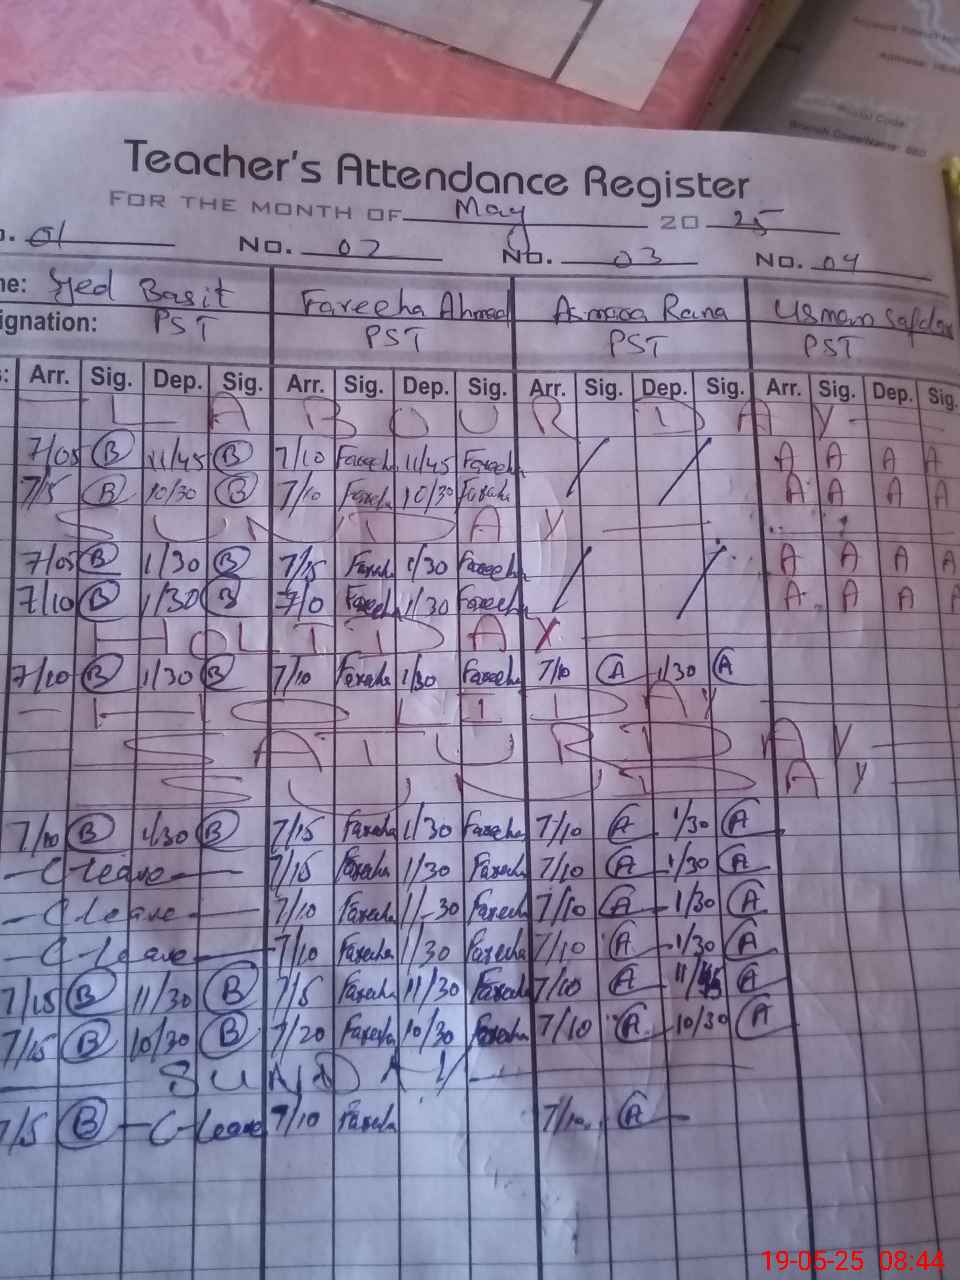 Teacher's Attendance Register
FOR THE MONTH OF May 20 25
o. 01 No. 02 No. 03 No. 04
me: Syed Basit Fareeha Ahmad Asmaa Rana Usman Safdar
signation: PST PST PST PST
s: Arr. Sig. Dep. Sig. Arr. Sig. Dep. Sig. Arr. Sig. Dep. Sig. Arr. Sig. Dep. Sig.
— L A B O U R D A Y —
7/05 B 11/45 B 7/10 Fareeha 11/45 Fareeha / / A A A A
7/5 B 10/30 B 7/10 Fareeha 10/30 Fareeha A A A A
S U N D A Y
7/05 B 1/30 B 7/15 Fareeha 1/30 Fareeha / / A A A A
7/10 B 1/30 B 7/0 Fareeha 1/30 Fareeha A A A A
H O L I D A Y
7/10 B 1/30 B 7/10 Fareeha 1/30 Fareeha 7/10 A 1/30 A
— H O L I D A Y
S A T U R D A Y —
S U N D A Y
7/10 B 1/30 B 7/15 Fareeha 1/30 Fareeha 7/10 A 1/30 A
— C-leave — 7/15 Fareeha 1/30 Fareeha 7/10 A 1/30 A
— C-leave — 7/10 Fareeha 11-30 Fareeha 7/10 A 1/30 A
— C-leave — 7/10 Fareeha 11/30 Fareeha 7/10 A 1/30 A
7/15 B 11/30 B 7/5 Fareeha 11/30 Fareeha 7/10 A 11/45 A
7/15 B 10/30 B 7/20 Fareeha 10/30 Fareeha 7/10 A 10/30 A
— S U N D A Y —
7/5 B — C-Leave 7/10 Fareeha 7/10 A —
19-05-25 08:44